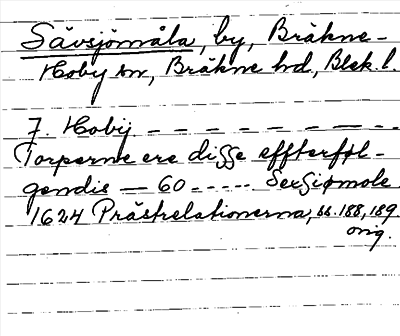 Sävsjömåla, by, Bräkne-
Hoby sn, Bräkne hd, Blek. l.
7. Hobÿ - - - - - - - - -
Torperne ere disse effterføl-
gendis — 60 ----- Seffsiømole
1624 Prästrelationerna, ss. 188, 189.
orig.